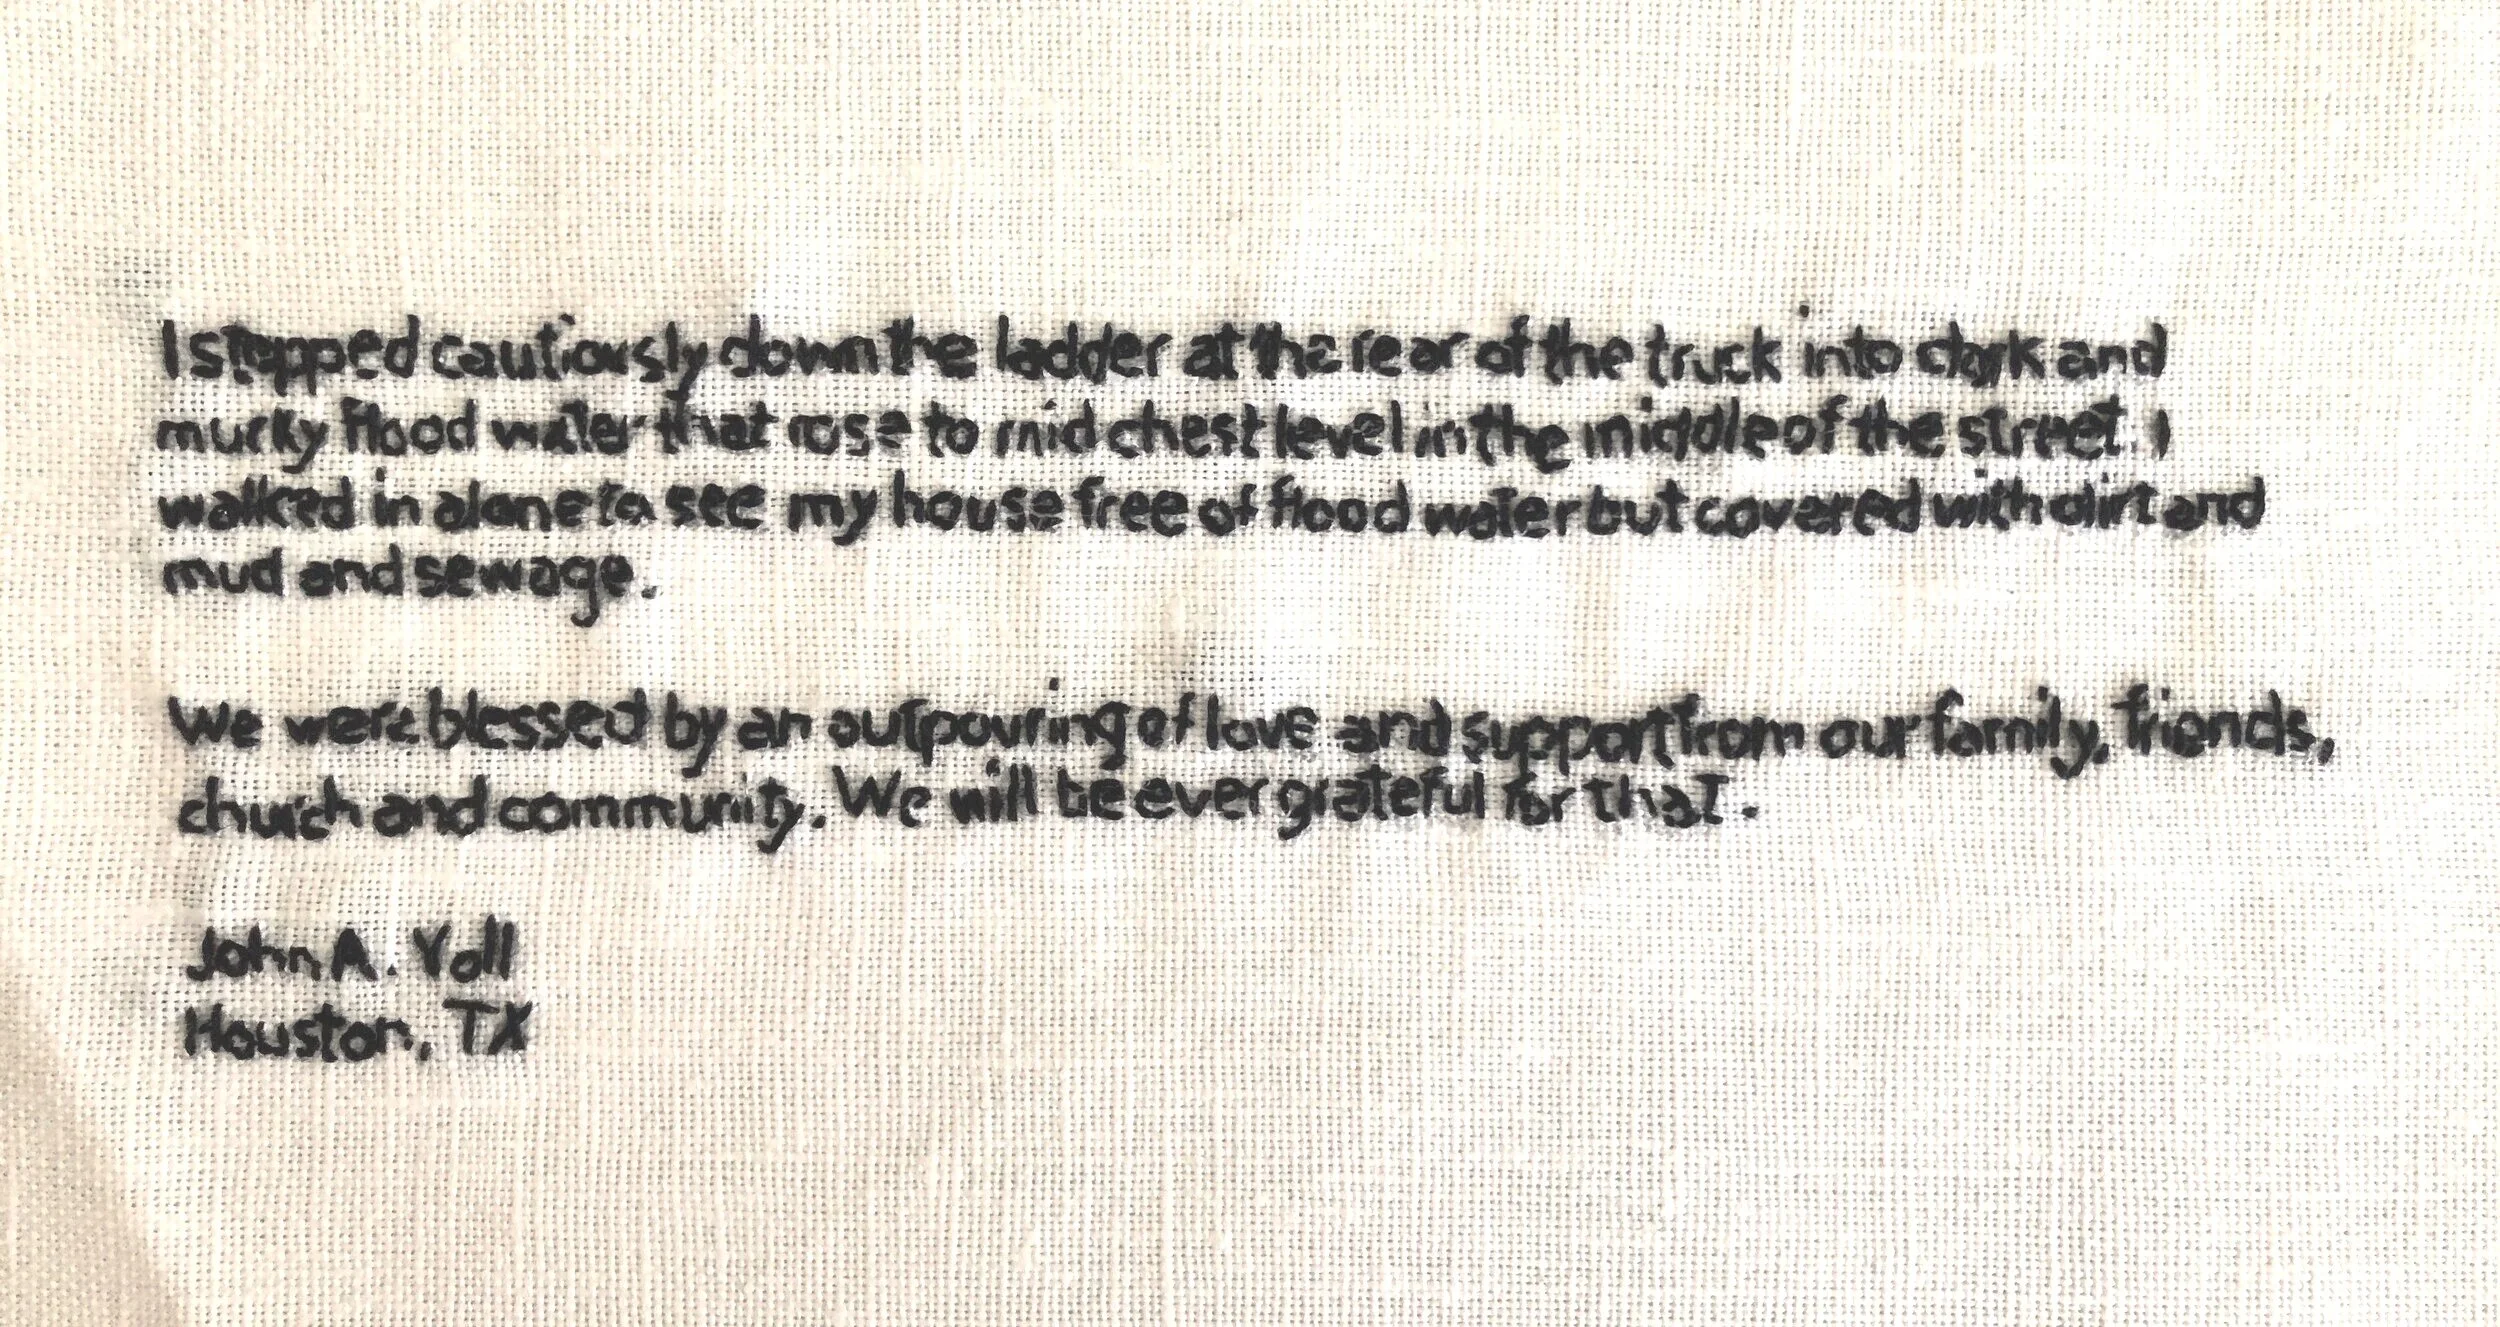 I stepped cautiously down the ladder at the rear of the truck into dark and
murky flood water that rose to mid chest level in the middle of the street. I
walked in alone to see my house free of flood water but covered with dirt and
mud and sewage.
We were blessed by an outpouring of love and support from our family, friends,
church and community. We will be ever grateful for that.
John A. Voll
Houston, TX